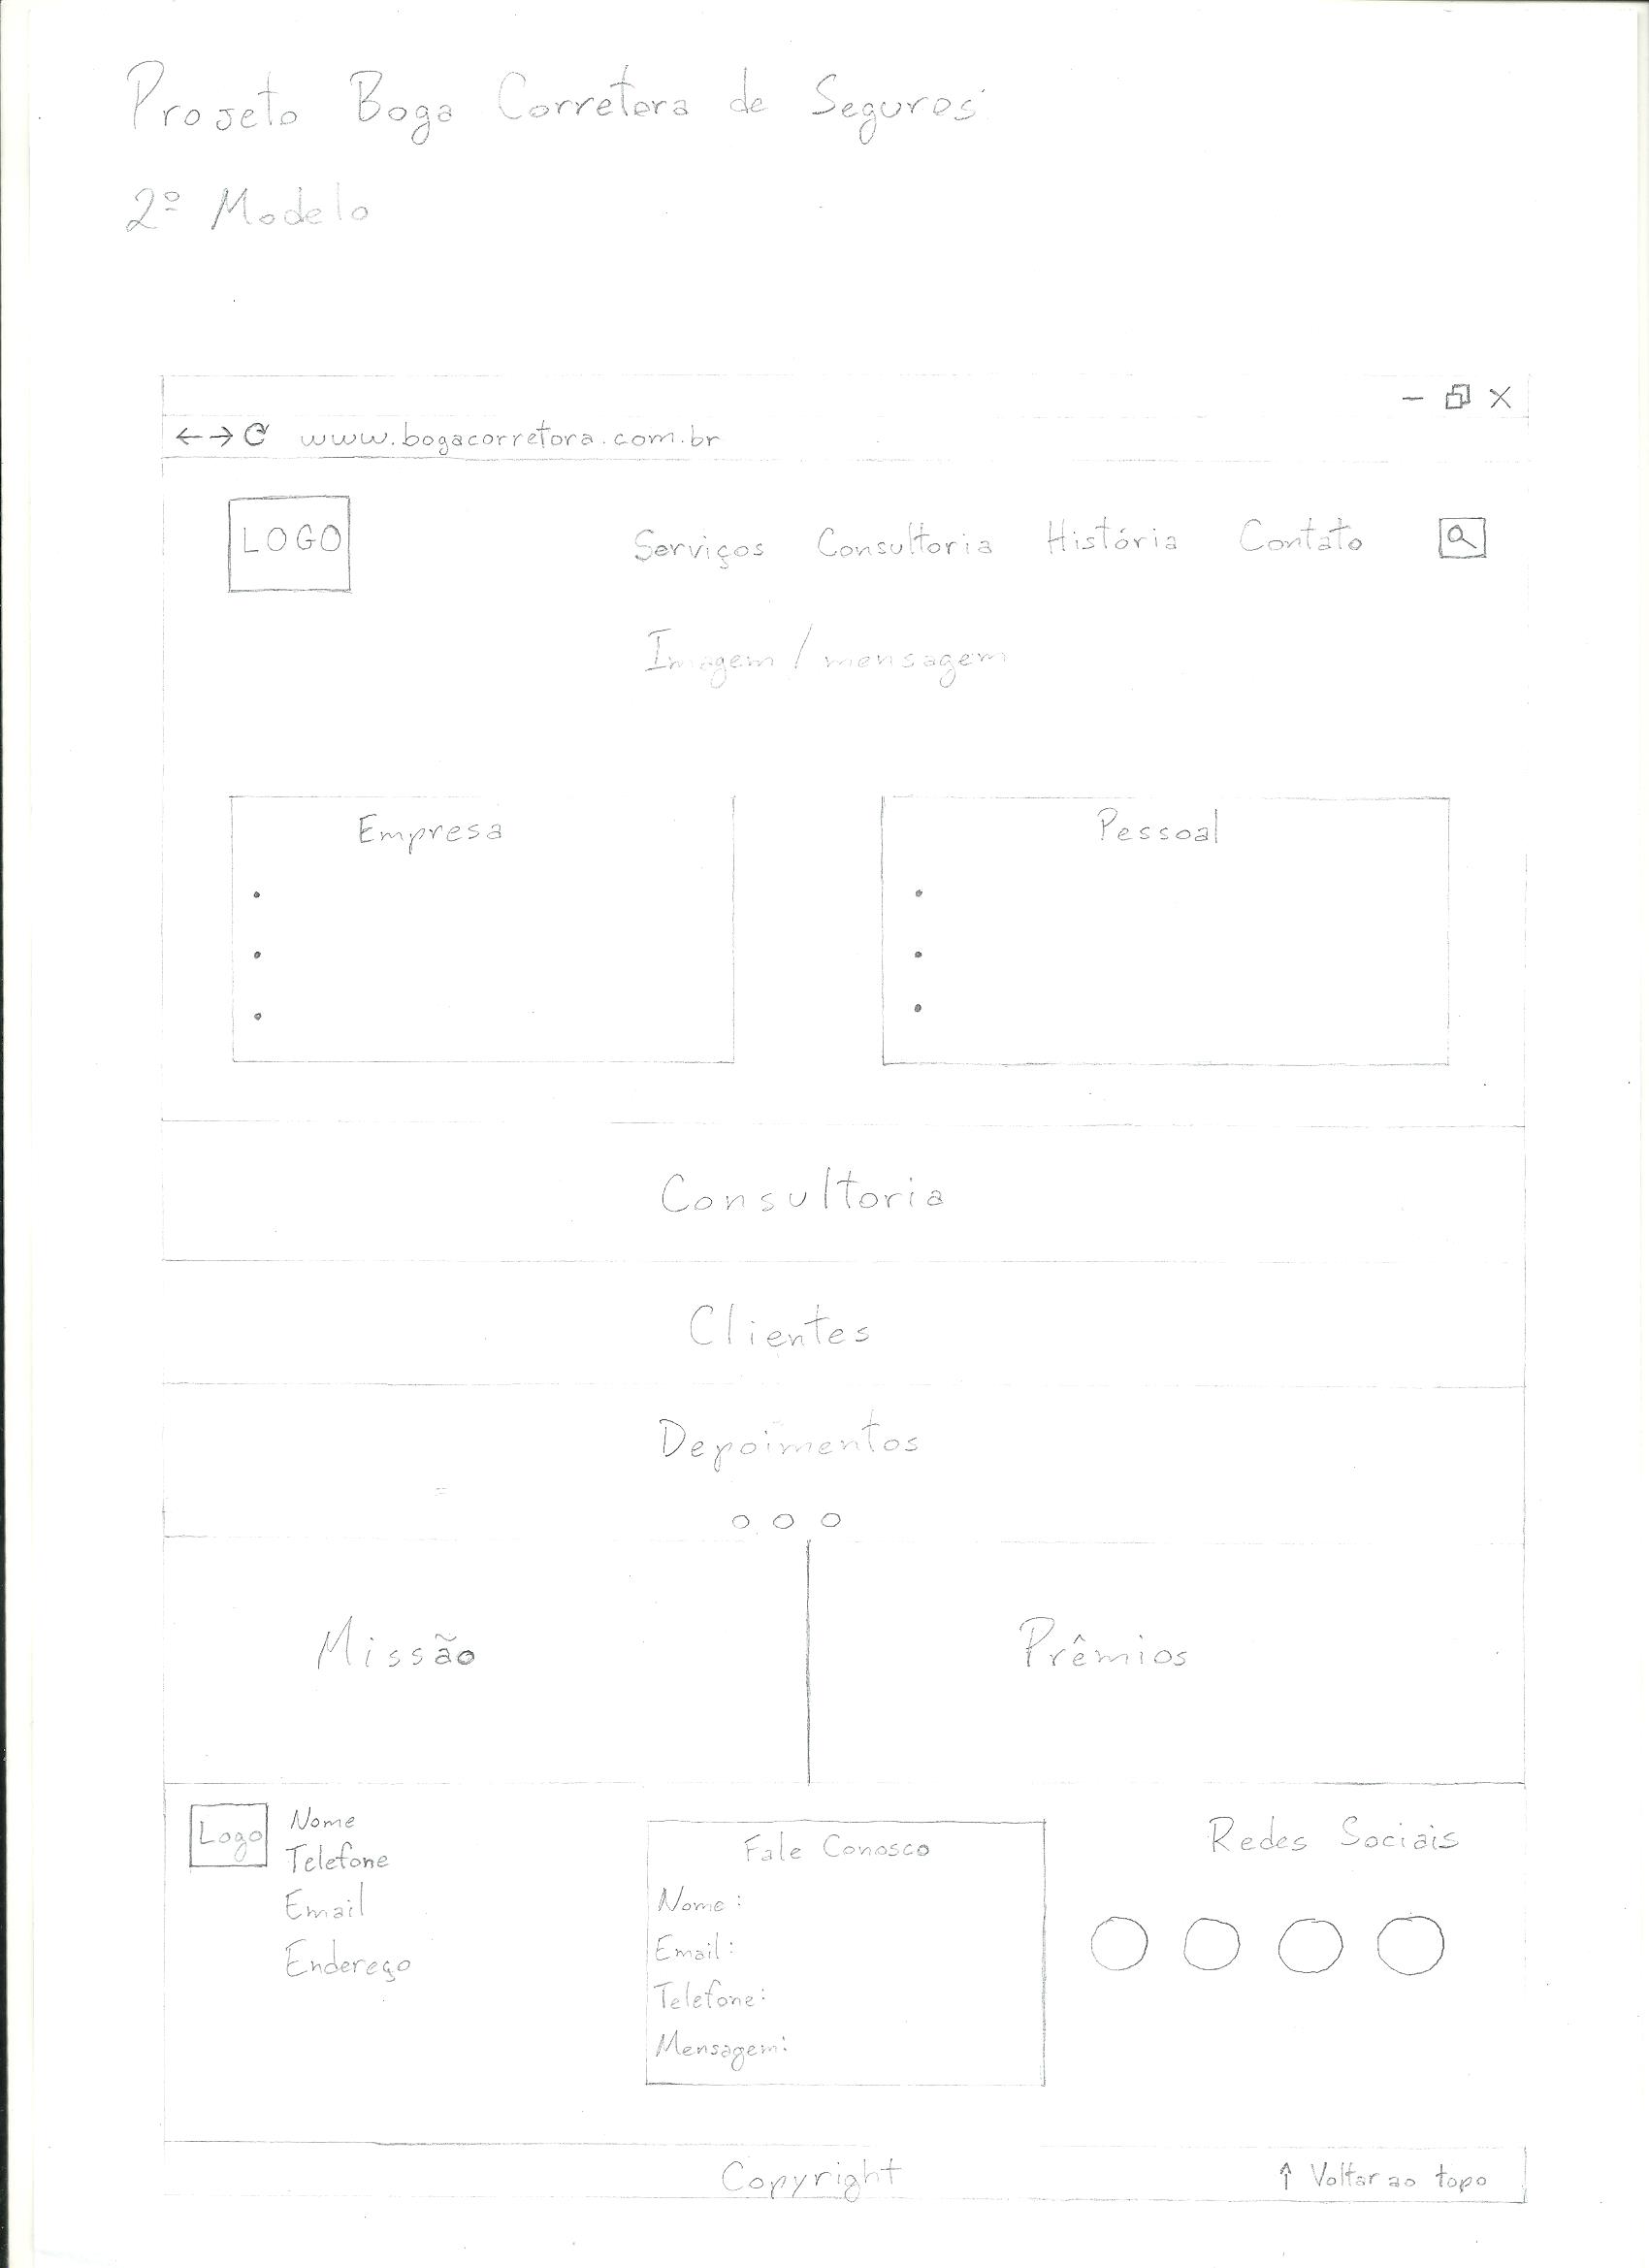 Projeto Boga Corretora de Seguros
2º Modelo
www.bogacorretora.com.br
LOGO
Serviços Consultoria História Contato
Imagem / mensagem
Empresa
Pessoal
Consultoria
Clientes
Depoimentos
Missão
Prêmios
Logo
Nome
Telefone
Email
Endereço
Fale Conosco
Nome:
Email:
Telefone:
Mensagem:
Redes Sociais
Copyright
↑ Voltar ao topo